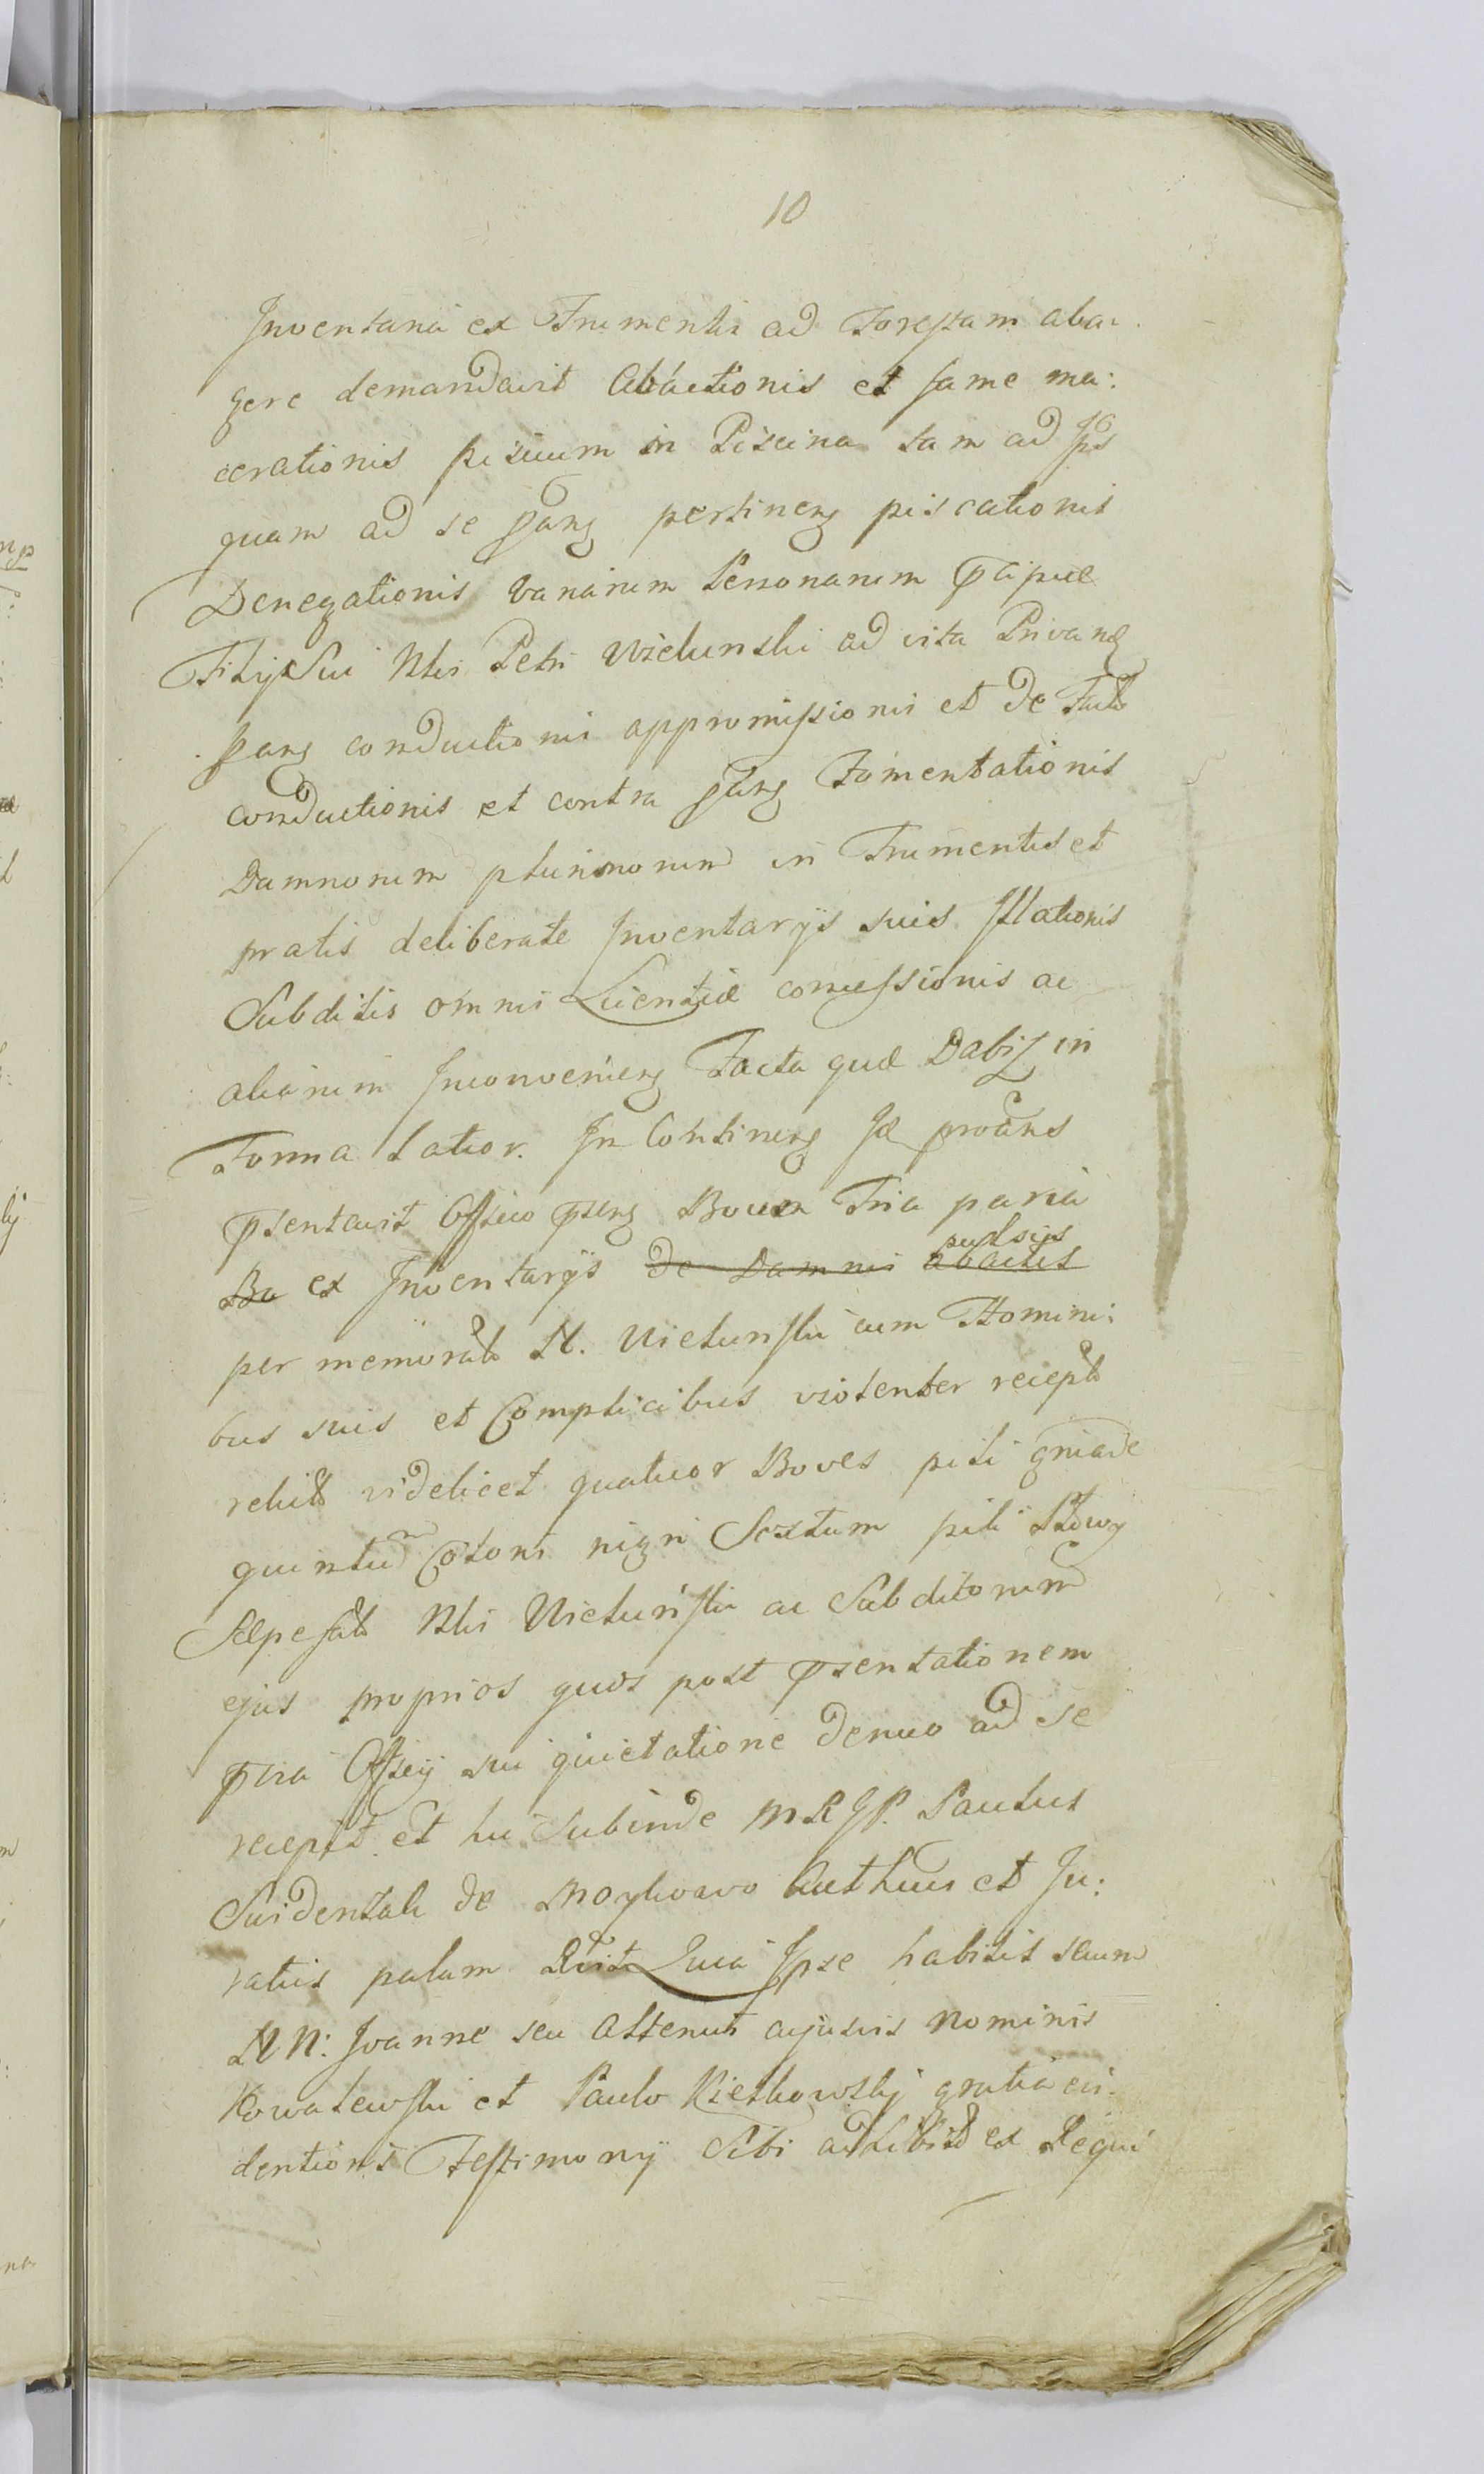 10
Inventaria ex Frumentis ad Forestam aba:
gere demandavit Abactionis et fame ma:
cerationis piscium in Piscina tam ad Ips
quam ad se ptang pertineng piscationis
Denegationis variarum Personarum pcipue
Filij Sui Nbis Petri Wielunski ad vita Privand
ptang conductionis appromissionis et de Facto
conductionis et contra ptang Fomentationis
Damnorum plurimorum in Frumentis et
pratis deliberate Inventarijs suis Illationis
Subditis omnis Licentiae concessionis ac
aliorum Inconvenieng Facta quae Dabit in
Forma latior. In Contineng Id protans
psentavit Officio pseng Boum Tria paria
Bo ex Inventarijs de Damnis abactis pulsis
per memorato N. Wielunski cum Homini:
bus suis et Complicibus violenter recepto
relicto videlicet quatuor Boves pili gniade
quintum Coloris nigri Sextum pili
Saepefato Nbis Wielunski ac Subditorum
ejus proprios quos post psentationem
pvia Officij sui quietatione denuo ad se
recepit et hic Subinde MRGP. Paulus
de et Ju:
ratus palam Rlvit Quia Ipse habitis secum
NN: Joanne seu alterius cujusvis Nominis
Kowalewski et Paulo Kietkowskij gratia evi:
dentioris Testimonij Sibi adhibito ex Requi